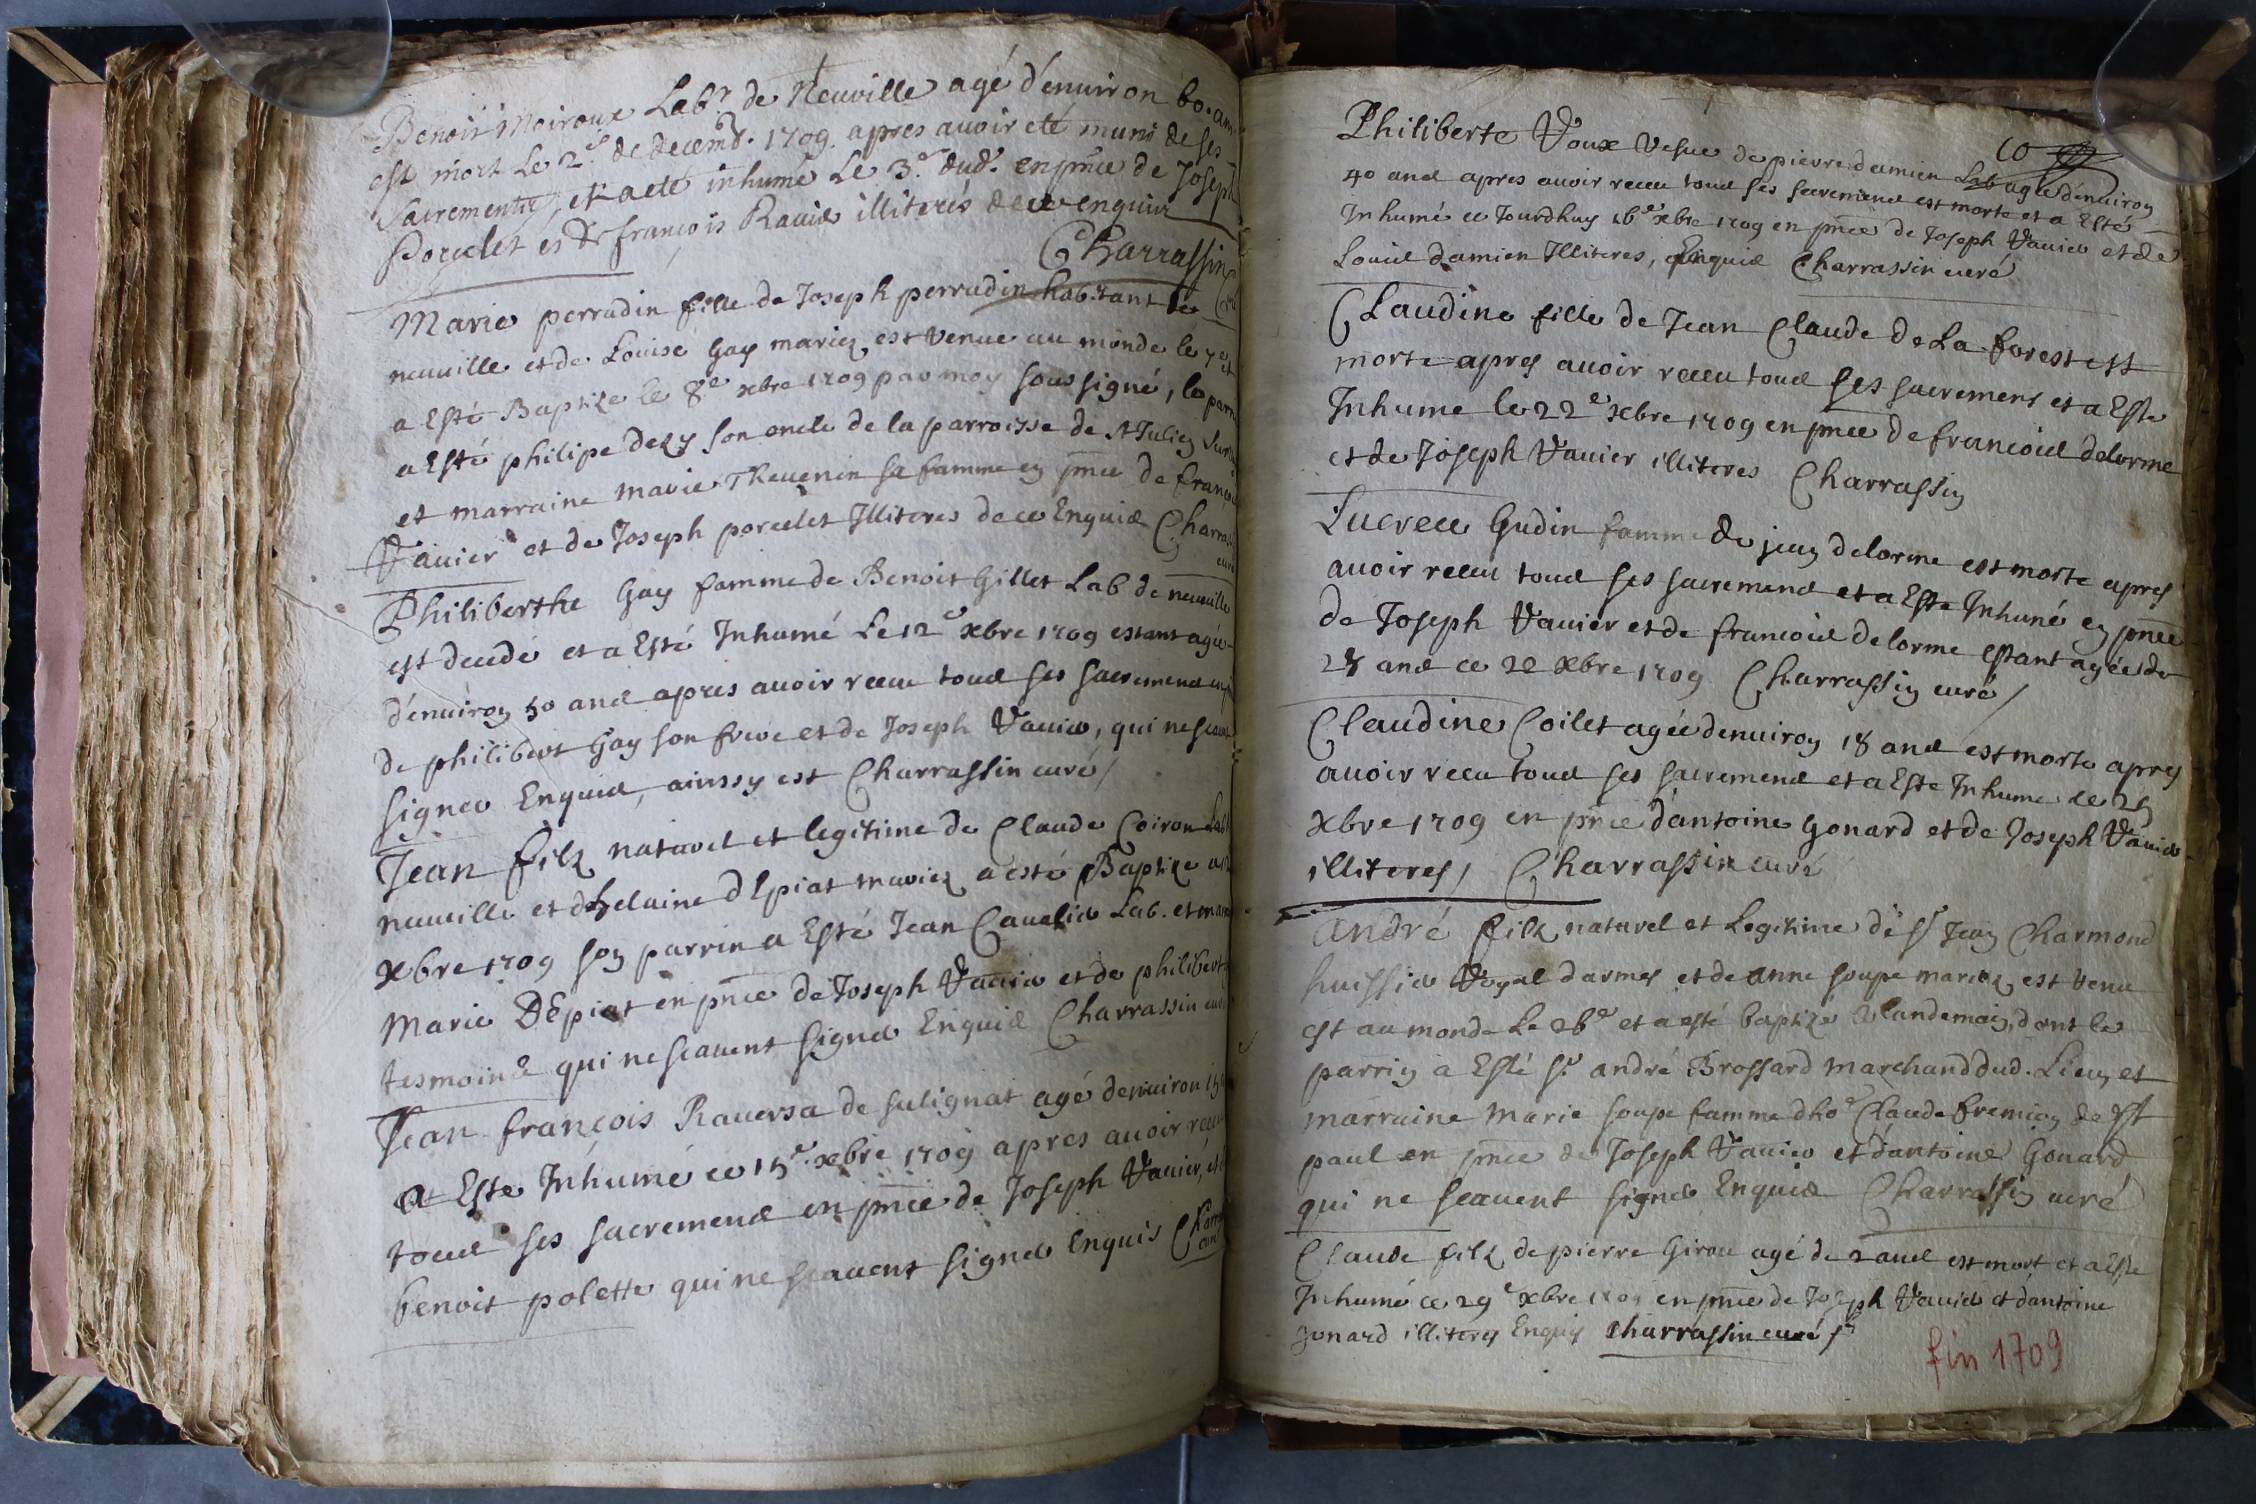 Benoit Moiroux Labr. de Neuville agé d'enuiron 60. ans
est mort Le 2e. de decemb. 1709. apres auoir eté muni de ses
sacrements, et a eté inhumé Le 3e. dud. en pnce de Joseph
Porcelet et de françois Rauier illiterés de ce enquis
Charrassin
Marie perradin fille de Joseph perradin habitant de
neuuille et de Louise Gay mariez est venue au monde le 7e et
a Esté Baptize le 8e xbre 1709 par moy soussigné, le parr
a Esté philipe dezy son oncle de la parroisse de St Julien sur
et marraine marie Theuenin sa famme en pnce de françoi
Vauier et de Joseph porcelet Illiteres de ce Enquis Charras
curé
Philiberthe Gay famme de Benoit Gillet Lab de neuuille
est decedé et a Esté Inhumé Le 12e xbre 1709 estant agée
d'enuiron 50 ans apres auoir receu tous ses sacremens en
de philibert Gay son frere et de Joseph Vauier, qui ne scauent
signer Enquis, ainssy est Charrassin curé /
Jean filz naturel et legitime de Claude Coiron Lab
neuuille et d'helaine dEpiat mariez a esté Baptize
xbre 1709 son parrin a Esté Jean Caualier Lab. et marr
Marie DEpiat en pnce de Joseph Vauier et de philibert
tesmoins qui ne scauent signer Enquis Charrassin curé
Jean françois Rauersa de sulignat agé denuiron
a Esté Inhumé ce 15e. xbre 1709 apres auoir receu
tous ses sacremens en pnce de Joseph Vauier, et
benoit polette qui ne scauent signer Enquis Charr
Philiberte Voux vefue de pierre damien Lab agée denuiron
40 ans apres auoir receu tous ses sacremens est morte et a Esté
Inhumé ce Jourdhuy 16e xbre 1709 en pnce de Joseph Vauier et de
Louis damien Illiteres, Enquis Charrassin curé
Claudine fille de Jean Claude de La forest est
morte apres auoir receu tous ses sacremens et a Este
Inhume le 22e xbre 1709 en pnce de francois delorme
et de Joseph Vauier illiteres Charrassin
Lucrece Gudin famme de jean delorme est morte apres
auoir receu tous ses sacremens et a Este Inhumé en pnce
de Joseph Vauier et de francois delorme estant agée de
28 ans ce 22 xbre 1709 Charrassin curé /
Claudine Coilet agée denuiron 18 ans est morte apres
auoir receu tous ses sacremens et a Este Inhume le 25
xbre 1709 en pnce d'antoine Gonard et de Joseph Vauier
illiteres, Charrassin curé
André filz naturel et Legitime de Sr Jean Charmond
huissier Royal darmes et de anne soupe mariez est venu
est au monde Le 26e et a esté baptizé Le landemain, dont le
parrin a Esté Sr. andré Brossard marchand dud. Lieu, et
marraine Marie soupe famme dho. Claude fremion de st
paul en pnce de Joseph Vauier et d'antoine Gonard
qui ne scauent signer Enquis Charrassin curé
Claude filz de pierre Girou agé de 2 ans est mort et a Este
Inhumé ce 29e xbre 1709 en pnce de Joseph Vauier et d'antoine
gonard illiteres Enquis Charrassin curé
fin 1709